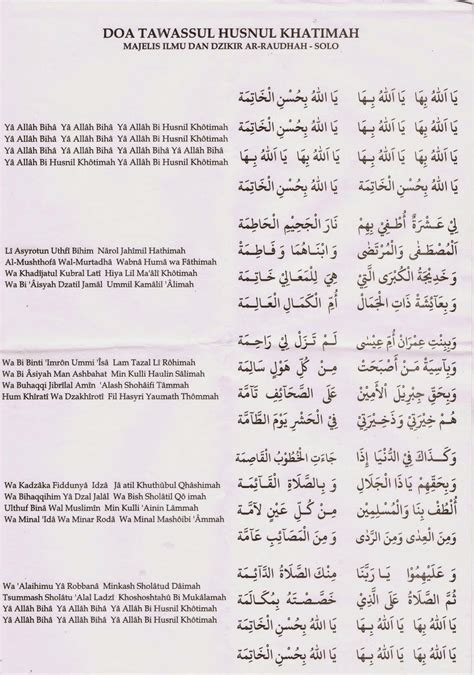 DOA TAWASSUL HUSNUL KHATIMAH
MAJELIS ILMU DAN DZIKIR AR-RAUDHAH - SOLO
Yâ Allâh Bihâ Yâ Allâh Bihâ Yâ Allâh Bi Husnil Khôtimah
Yâ Allâh Bihâ Yâ Allâh Bihâ Yâ Allâh Bi Husnil Khôtimah
Yâ Allâh Bihâ Yâ Allâh Bihâ Yâ Allâh Bihâ Yâ Allâh Bihâ
Yâ Allâh Bi Husnil Khôtimah Yâ Allâh Bi Husnil Khôtimah
يَا اَللهُ بِهَا يَا اَللهُ بِـهَا يَا اَللهُ بِحُسْنِ الْخَاتِمَة
يَا اَللهُ بِهَا يَا اَللهُ بِـهَا يَا اَللهُ بِحُسْنِ الْخَاتِمَة
يَا اَللهُ بِهَا يَا اَللهُ بِـهَا يَا اَللهُ بِـهَا يَا اَللهُ بِـهَا
يَا اَللهُ بِحُسْنِ الْخَاتِمَة يَا اَللهُ بِحُسْنِ الْخَاتِمَة
Lî Asyrotun Uthfî Bihim Nârol Jahîmil Hathimah
Al-Mushthofâ Wal-Murtadhâ Wabnâ Humâ wa Fâthimah
Wa Khadîjatul Kubral Latî Hiya Lil Ma'âlî Khôtimah
Wa Bi 'Âisyah Dzatil Jamâl Ummil Kamâlil 'Âlimah
لِي عَشْرَةٌ أُطْـفِيْ بِهِمْ نَارَ الْجَحِيْمِ الْحَاطِمَة
اَلْمُصْطَـفَى وَالْمُرْتَضَى وَابْنَاهُمَا وَفَـاطِمَة
وَخَدِيْجَةُ الْكُبْرَى الَّتِيْ هِيَ لِلْمَعَالِيْ خَـاتِـمَة
وَبِعَائِشَةْ ذَاتِ الْجَمَالْ أُمِّ الْكَمَالِ الْعَـالِـمَة
Wa Bi Binti 'Imrôn Ummi 'Îsâ Lam Tazal Lî Rôhimah
Wa Bi Âsiyah Man Ashbahat Min Kulli Haulin Sâlimah
Wa Buhaqqi Jibrîlal Amîn 'Alash Shohâifi Tâmmah
Hum Khîratî Wa Dzakhîrotî Fil Hasyri Yaumath Thômmah
وَبِبِنْتِ عِمْرَانْ أُمِّ عِيسَى لَـمْ تَـزَلْ لِيْ رَاحِـمَة
وَبِآسِيَةْ مَنْ أَصْبَحَتْ مِـنْ كُلِّ هَـوْلٍ سَالِمَة
وَبِحَقِّ جِبْرِيْلَ الْأَمِيْنْ عَلَى الصَّحَائِـفِ تَـآمَّة
هُمْ خِيْرَتِيْ وَذَخِيْرَتِيْ فِي الْحَشْرِ يَوْمَ الطَّآمَّة
Wa Kadzâka Fiddunyâ Idzâ Jâ atil Khuthûbul Qhâshimah
Wa Bihaqqihim Yâ Dzal Jalâl Wa Bish Sholâtil Qô imah
Ulthuf Binâ Wal Muslimîn Min Kulli 'Ainin Lâmmah
Wa Minal 'Idâ Wa Minar Rodâ Wa Minal Mashôibi 'Âmmah
وَكَـذَاكَ فِي الـدُّنْـيَا إِذَا جَاءَتِ الْخُطُوْبُ الْقَاصِمَة
وَبِحَقِّهِمْ يَا ذَا الْجَلَالْ وَ بِالصَّلَاةِ الْقَـآئِـمَة
أُلْطُفْ بِنَا وَالْمُسْلِمِيْنْ مِنْ كُـلِّ عَيْنٍ لَآمَّة
وَمِنَ الْعِدَى وَمِنَ الرَّدَى وَمِنَ الْمَصَائِبِ عَـآمَّة
Wa 'Alaihimu Yâ Robbanâ Minkash Sholâtud Dâimah
Tsummash Sholâtu 'Alal Ladzî Khoshoshtahû Bi Mukâlamah
Yâ Allâh Bihâ Yâ Allâh Bihâ Yâ Allâh Bi Husnil Khôtimah
Yâ Allâh Bihâ Yâ Allâh Bihâ Yâ Allâh Bi Husnil Khôtimah
وَ عَلَيْهِمُوْ يَا رَبَّـنَا مِنْكَ الصَّلَاةُ الدَّآئِـمَة
ثُمَّ الصَّلَاةُ عَلَى الَّذِيْ خَـصَّـصْـتَهُ بِمُكَـالَمَة
يَا اَللهُ بِهَا يَا اَللهُ بِهَا يَا اَللهُ بِحُسْنِ الْخَاتِمَة
يَا اَللهُ بِهَا يَا اَللهُ بِهَا يَا اَللهُ بِحُسْنِ الْخَاتِمَة